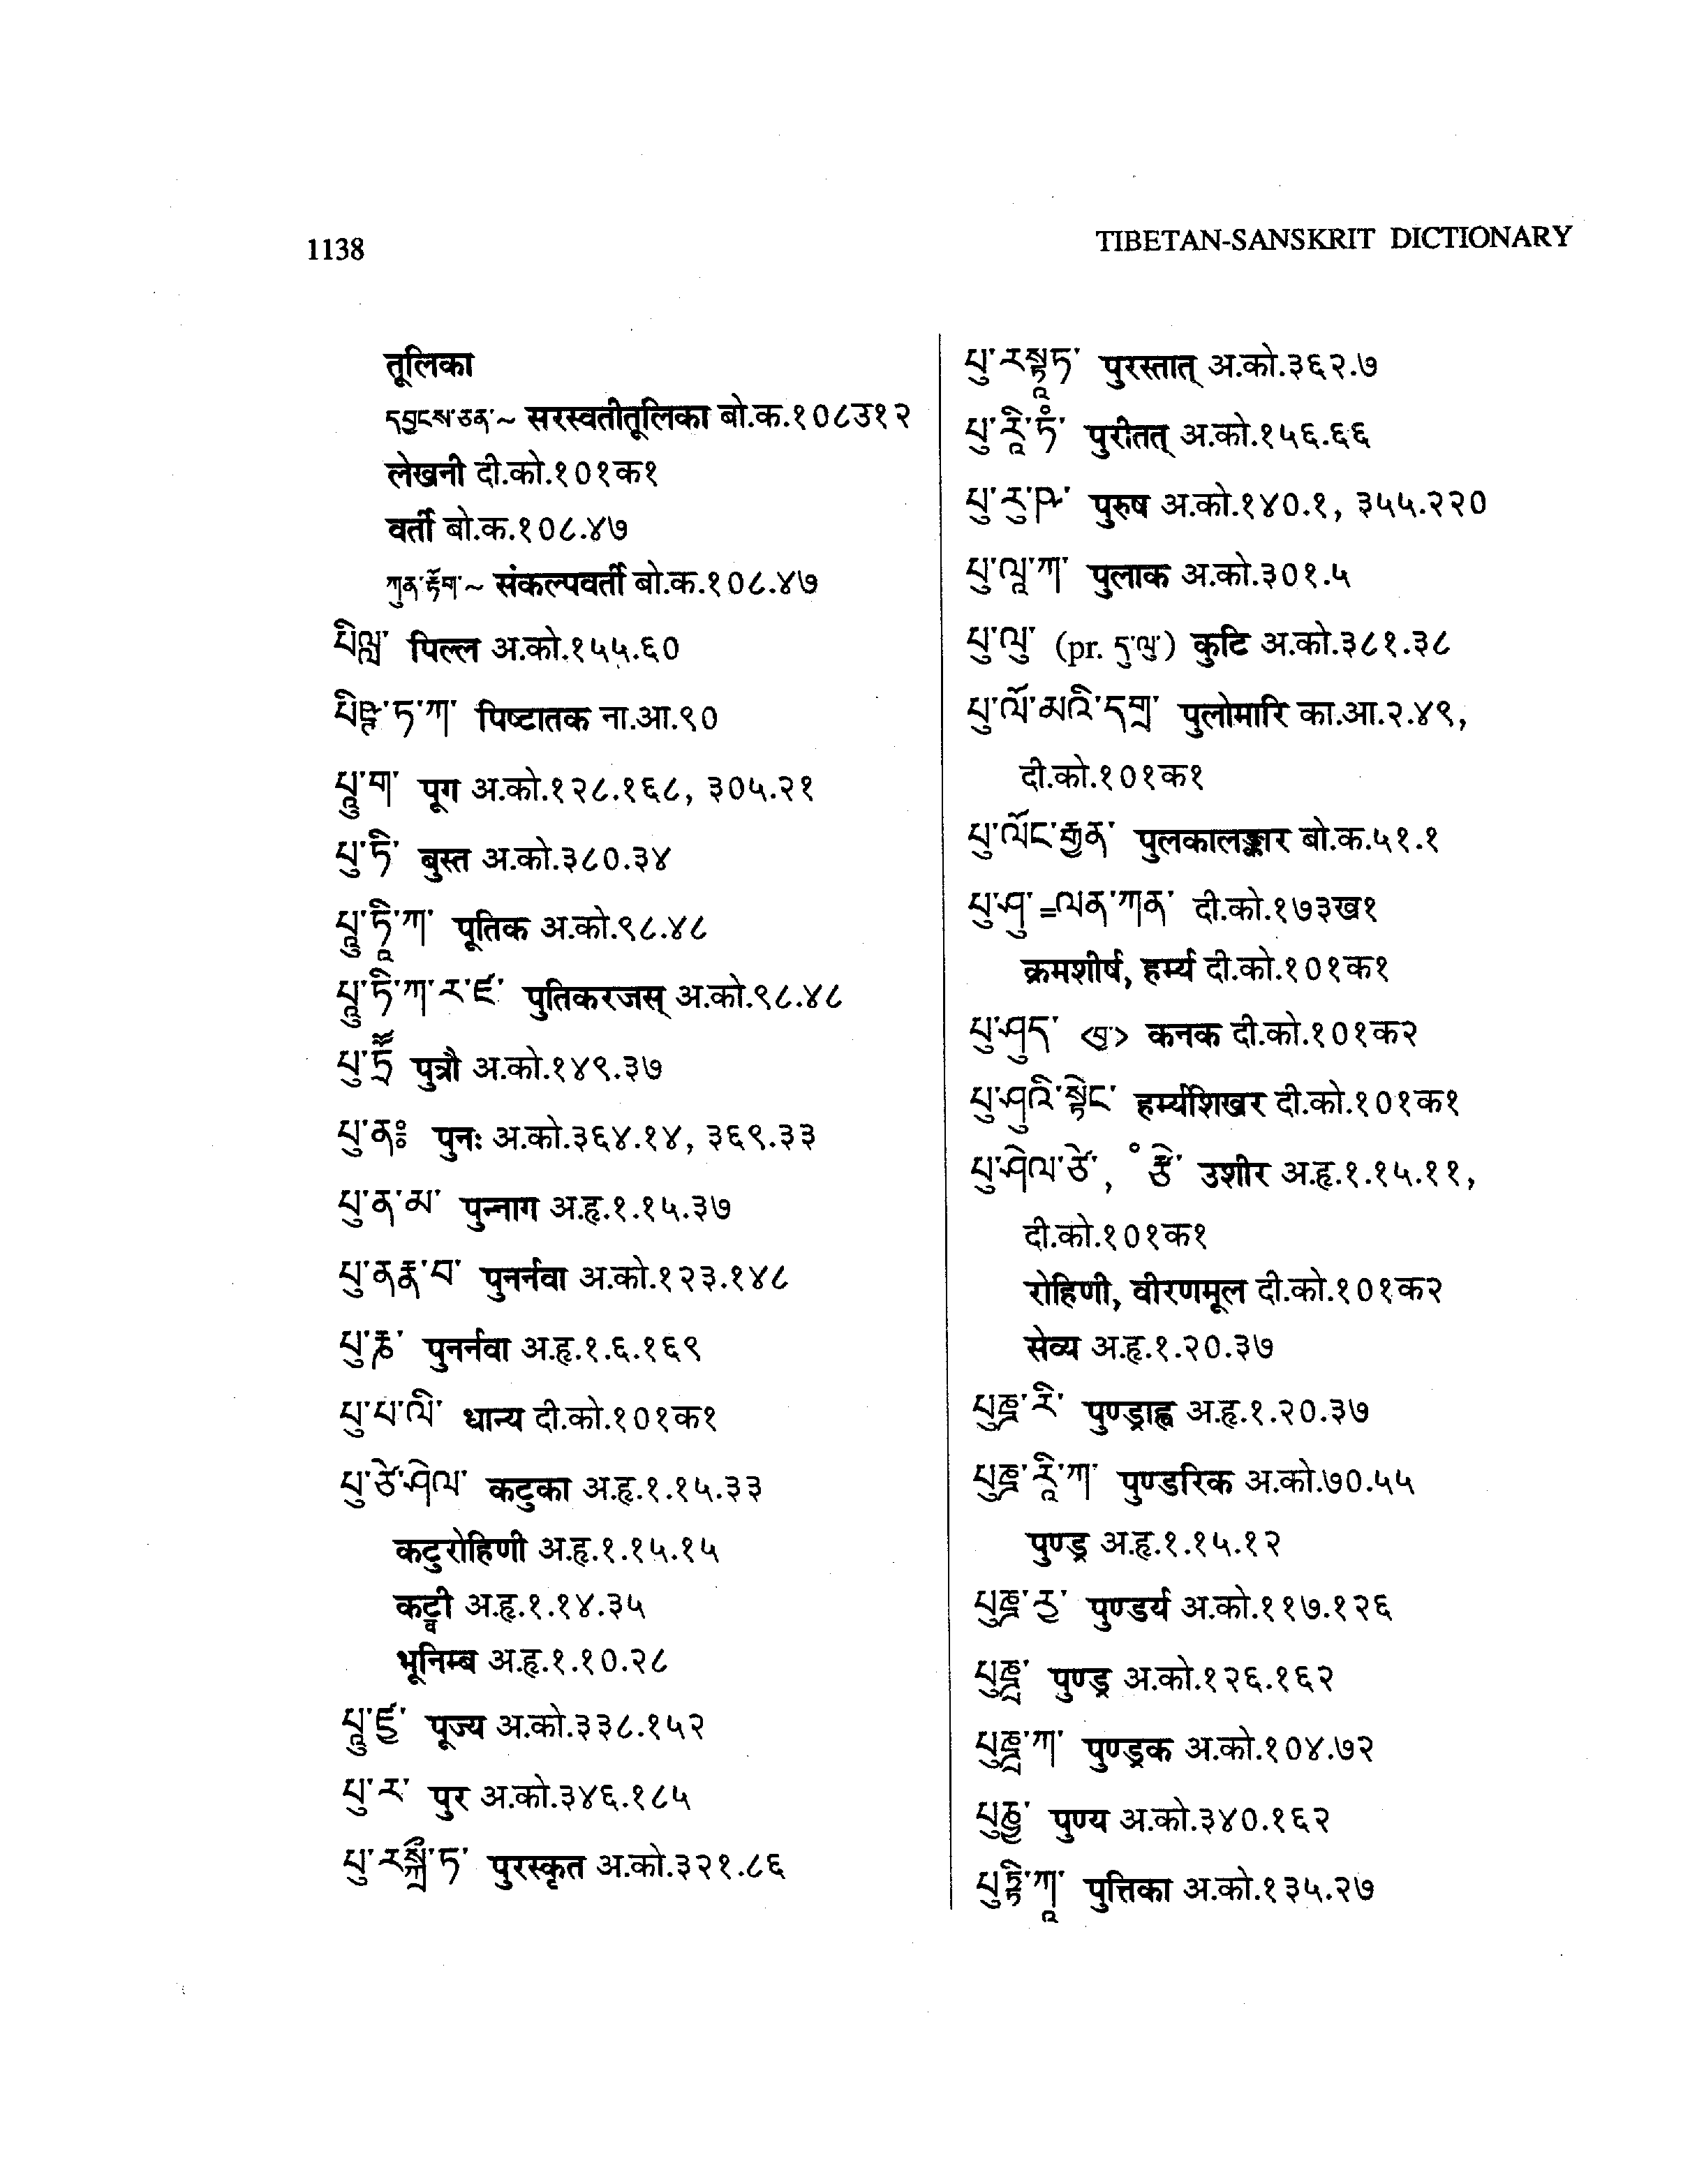 1138
TIBETAN-SANSKRIT DICTIONARY
तूलिका
དབྱངས་ཅན་~ सरस्वतीतूलिका बो.क.१०८उ१२
लेखनी दी.को.१०१क१
वर्ती बो.क.१०८.४७
ཀུན་རྟོག་~ संकल्पवर्ती बो.क.१०८.४७
པིལླ་ पिल्ल अ.को.१५५.६०
པིཥྚ་ཏ་ཀ་ पिष्टातक ना.आ.९०
པཱུ་ག་ पूग अ.को.१२८.१६८, ३०५.२१
པུ་ཏི་ बुस्त अ.को.३८०.३४
པཱུ་ཏཱི་ཀ་ पूतिक अ.को.९८.४८
པཱུ་ཏི་ཀ་ར་ཛ་ पुतिकरजस् अ.को.९८.४८
པུ་ཏྲཽ पुत्रौ अ.को.१४९.३७
པུ་ནཿ पुनः अ.को.३६४.१४, ३६९.३३
པུ་ན་མ་ पुन्नाग अ.हृ.१.१५.३७
པུ་ནརྣ་བ་ पुनर्नवा अ.को.१२३.१४८
པུ་རྣ་ पुनर्नवा अ.हृ.१.६.१६९
པུ་པ་ལི་ धान्य दी.को.१०१क१
པུ་ཙེ་ཤེལ་ कटुका अ.हृ.१.१५.३३
कटुरोहिणी अ.हृ.१.१५.१५
कट्वी अ.हृ.१.१४.३५
भूनिम्ब अ.हृ.१.१०.२८
པཱུ་ཛྱ་ पूज्य अ.को.३३८.१५२
པུ་ར་ पुर अ.को.३४६.१८५
པུ་རསྐྲྀ་ཏ་ पुरस्कृत अ.को.३२१.८६
པུ་རསྟཱཏ་ पुरस्तात् अ.को.३६२.७
པུ་རཱི་ཏཾ་ पुरीतत् अ.को.१५६.६६
པུ་རུ་ཥ་ पुरुष अ.को.१४०.१, ३५५.२२०
པུ་ལཱ་ཀ་ पुलाक अ.को.३०१.५
པུ་ལུ་ (pr. དུ་ལུ་) कुटि अ.को.३८१.३८
པུ་ལོ་མའི་དགྲ་ पुलोमारि का.आ.२.४९,
दी.को.१०१क१
པུ་ལོང་རྒྱན་ पुलकालङ्कार बो.क.५१.१
པུ་ཤུ་=ལན་ཀན་ दी.को.१७३ख१
क्रमशीर्ष, हर्म्य दी.को.१०१क१
པུ་ཤུད་ <ཁུ་> कनक दी.को.१०१क२
པུ་ཤུའི་སྟེང་ हर्म्यशिखर दी.को.१०१क१
པུ་ཤེལ་ཙེ་, ° རྩེ་ उशीर अ.हृ.१.१५.११,
दी.को.१०१क१
रोहिणी, वीरणमूल दी.को.१०१क२
सेव्य अ.हृ.१.२०.३७
པུཎྜ་རི་ पुण्ड्राह्व अ.हृ.१.२०.३७
པུཎྜ་རཱི་ཀ་ पुण्डरिक अ.को.७०.५५
पुण्ड्र अ.हृ.१.१५.१२
པུཎྜ་རྱ་ पुण्डर्य अ.को.११७.१२६
པུཎྜྲ་ पुण्ड्र अ.को.१२६.१६२
པུཎྜྲ་ཀ་ पुण्ड्रक अ.को.१०४.७२
པུཎྱ་ पुण्य अ.को.३४०.१६२
པུཏྟི་ཀཱ་ पुत्तिका अ.को.१३५.२७